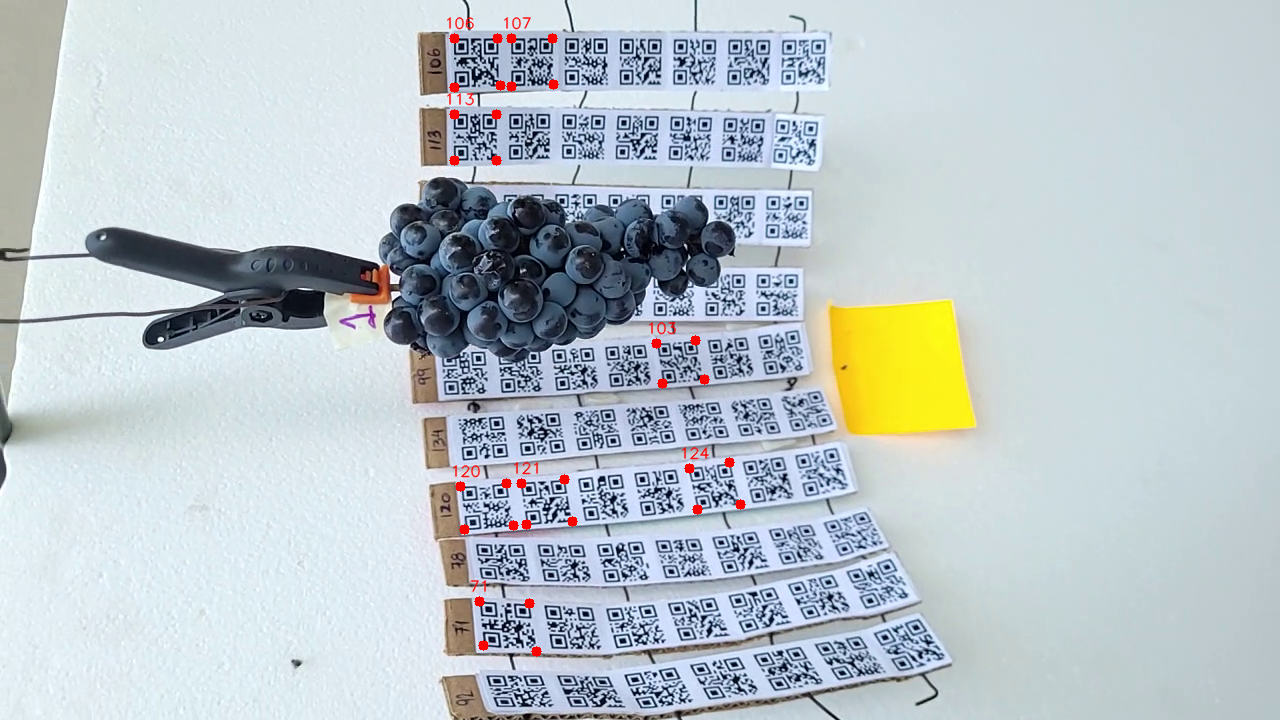 106 107
106
113
113
1
103
99
134
120 121 124
120
78
71
71
92